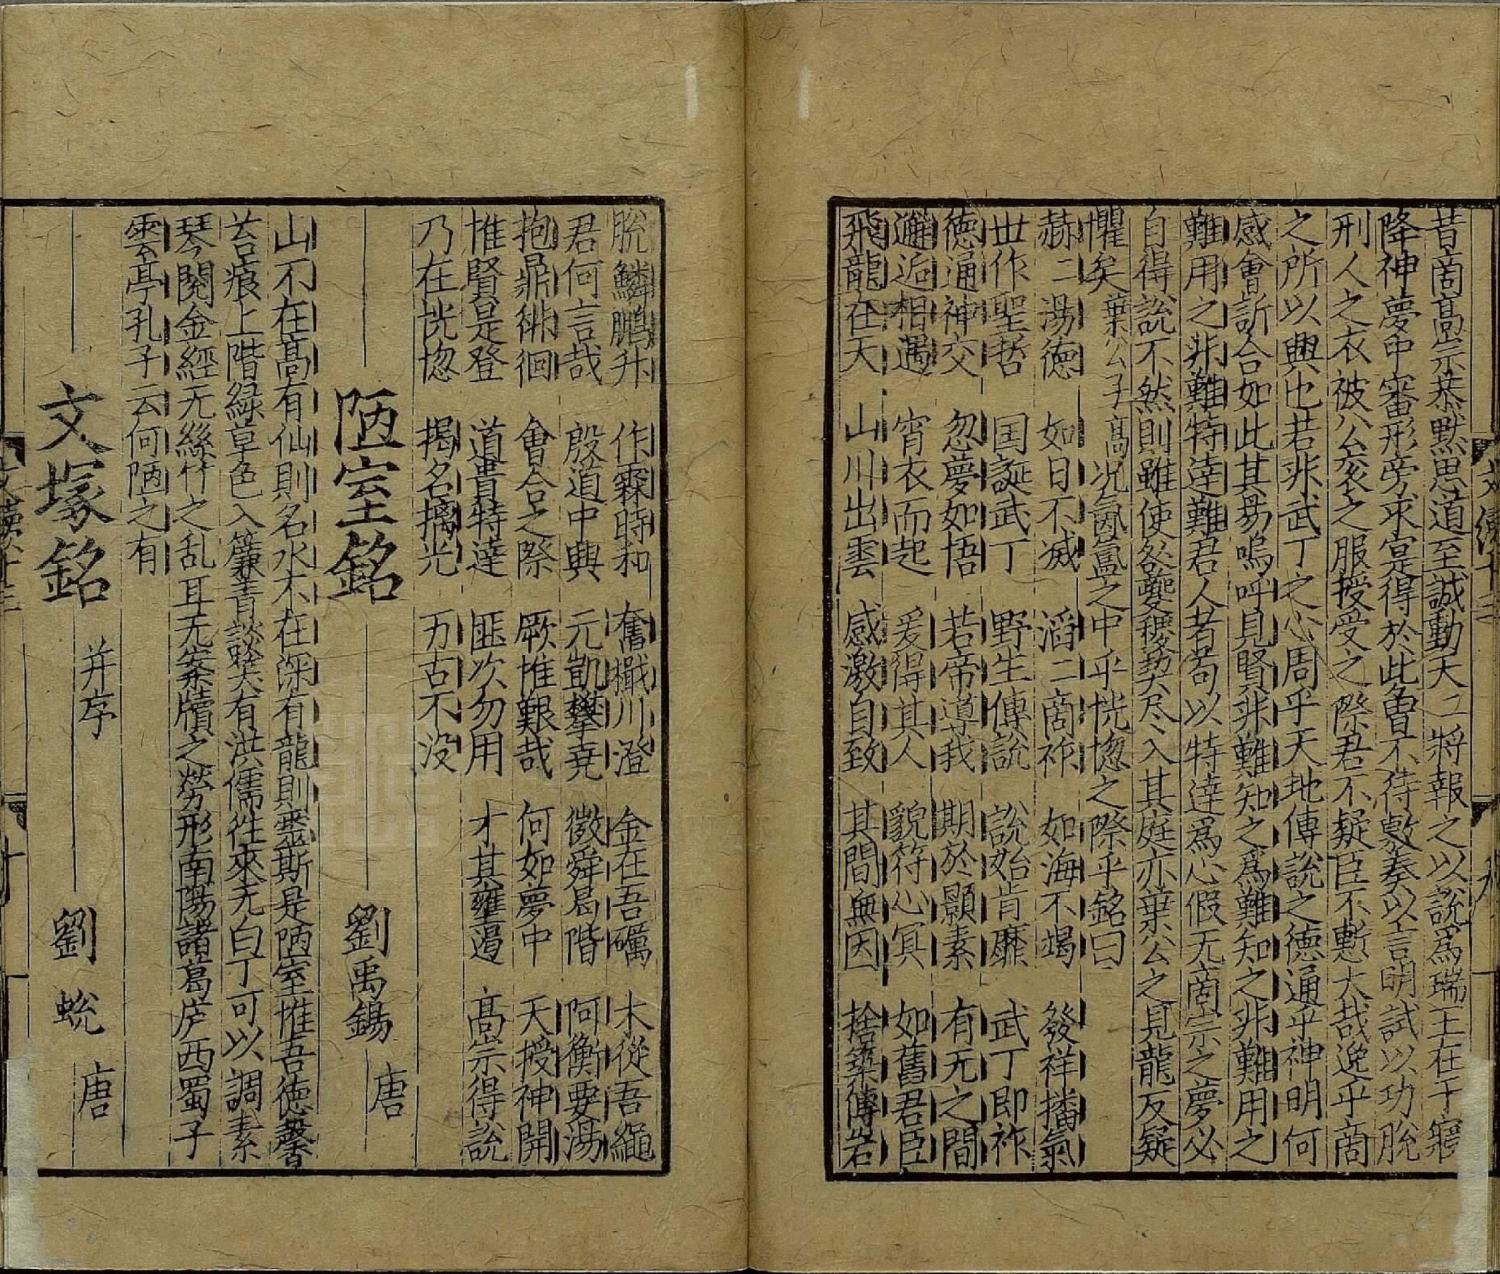 昔商髙宗恭默思道至誠動天二將報之以説爲瑞王在于寤
降神夢中審形旁求寔得於此曾不待敷奏以言明試以功脫
刑人之衣被公衮之服授受之際君不疑臣不慙大哉逸乎商
之所以興也若非武丁之心周乎天地傅説之德通乎神明何
感會訢合如此其昜嗚呼見賢非難知之爲難知之非難用之
難用之非難特達難君人者苟以特達爲心假无商宗之夢必
自得説不然則雖使咎夔稷契尽入其庭亦葉公之見龍反疑
懼矣葉公子髙况氤氳之中乎恍惚之際乎銘曰
赫二湯德 如日不滅 滔二商祚 如海不竭 發祥播氣
世作聖哲 囯誕武丁 野生傅説 説始胥靡 武丁即祚
德通神交 忽夢如悟 若帝導我 期於顯素 有无之間
邂逅相遇 宵衣而起 爰得其人 貌符心冥 如舊君臣
飛龍在天 山川出雲 感激自致 其間無因 捨築傅岩
脫鱗鵬升 作霖時和 奮檝川澄 金在吾礪 木從吾繩
君何言哉 殷道中興 元凱攀尭 徵舜曷階 阿衡要湯
抱鼎徘徊 會合之際 厥惟艱哉 何如夢中 天授神開
惟賢是登 道貴特達 匪次勿用 才其壅遏 髙宗得説
乃在恍惚 揭名摛光 万古不没
陋室銘 劉禹錫 唐
山不在髙有仙則名水不在深有龍則灵斯是陋室惟吾德馨
苔痕上階綠草色入簾青談笑有洪儒徃來无白丁可以調素
琴閱金經无絲竹之乱耳无案牘之勞形南陽諸葛庐西蜀子
雲亭孔子云何陋之有
文塚銘 并序 劉蛻 唐